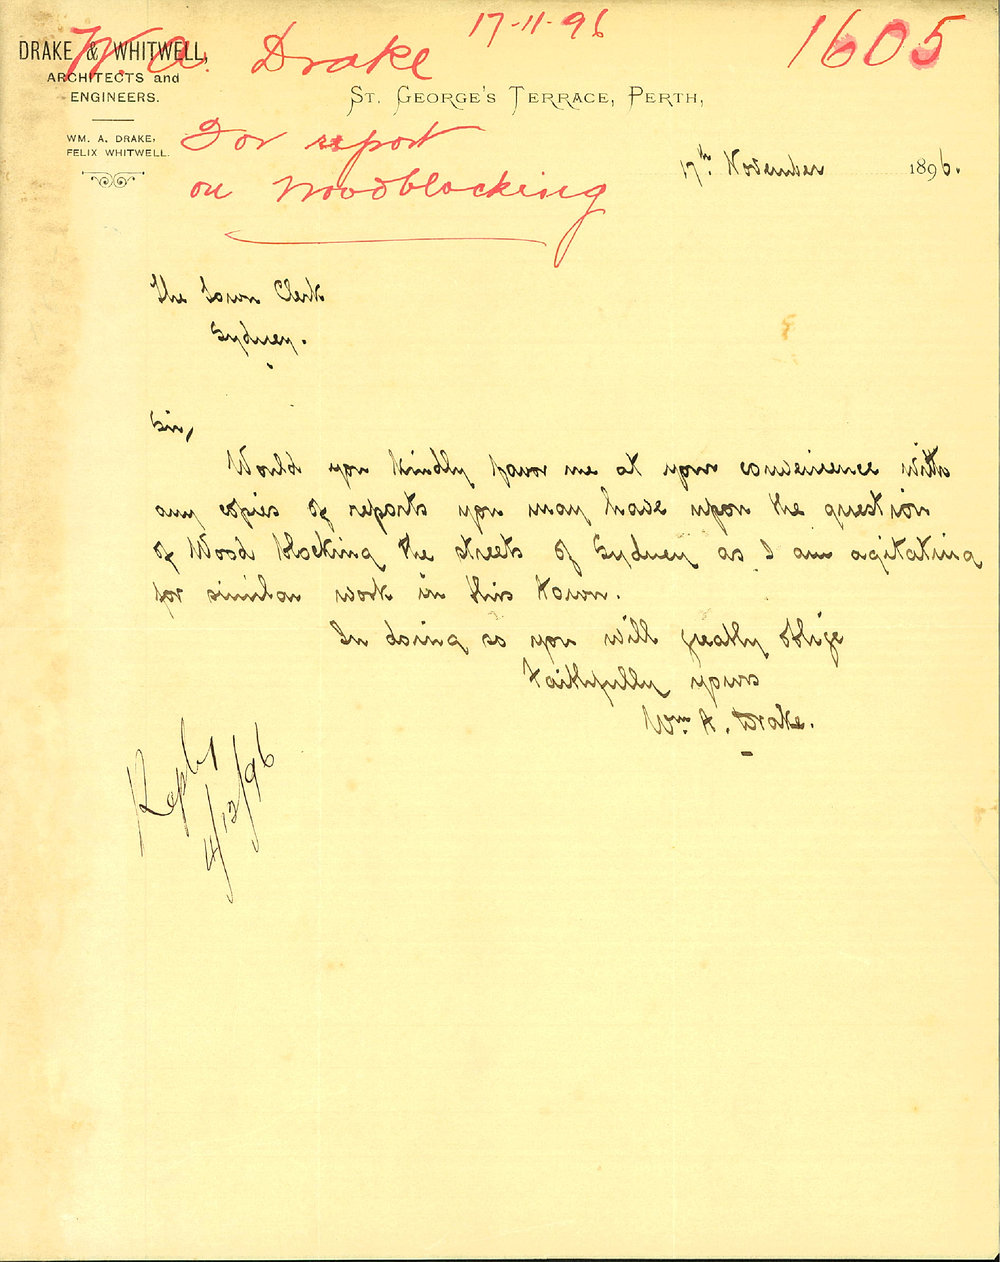 17-11-96
1605
W. A. Drake
For report
on Woodblocking
DRAKE & WHITWELL,
ARCHITECTS and
ENGINEERS.
WM. A. DRAKE,
FELIX WHITWELL.
ST. GEORGE'S TERRACE, PERTH,
17th November 1896.
The Town Clerk
Sydney.
Sir,
Would you kindly favor me at your convenience with
any copies of reports you may have upon the question
of Wood blocking the streets of Sydney as I am agitating
for similar work in this town.
In doing so you will greatly oblige
Faithfully yours
Wm. A. Drake.
Reply
4/12/96